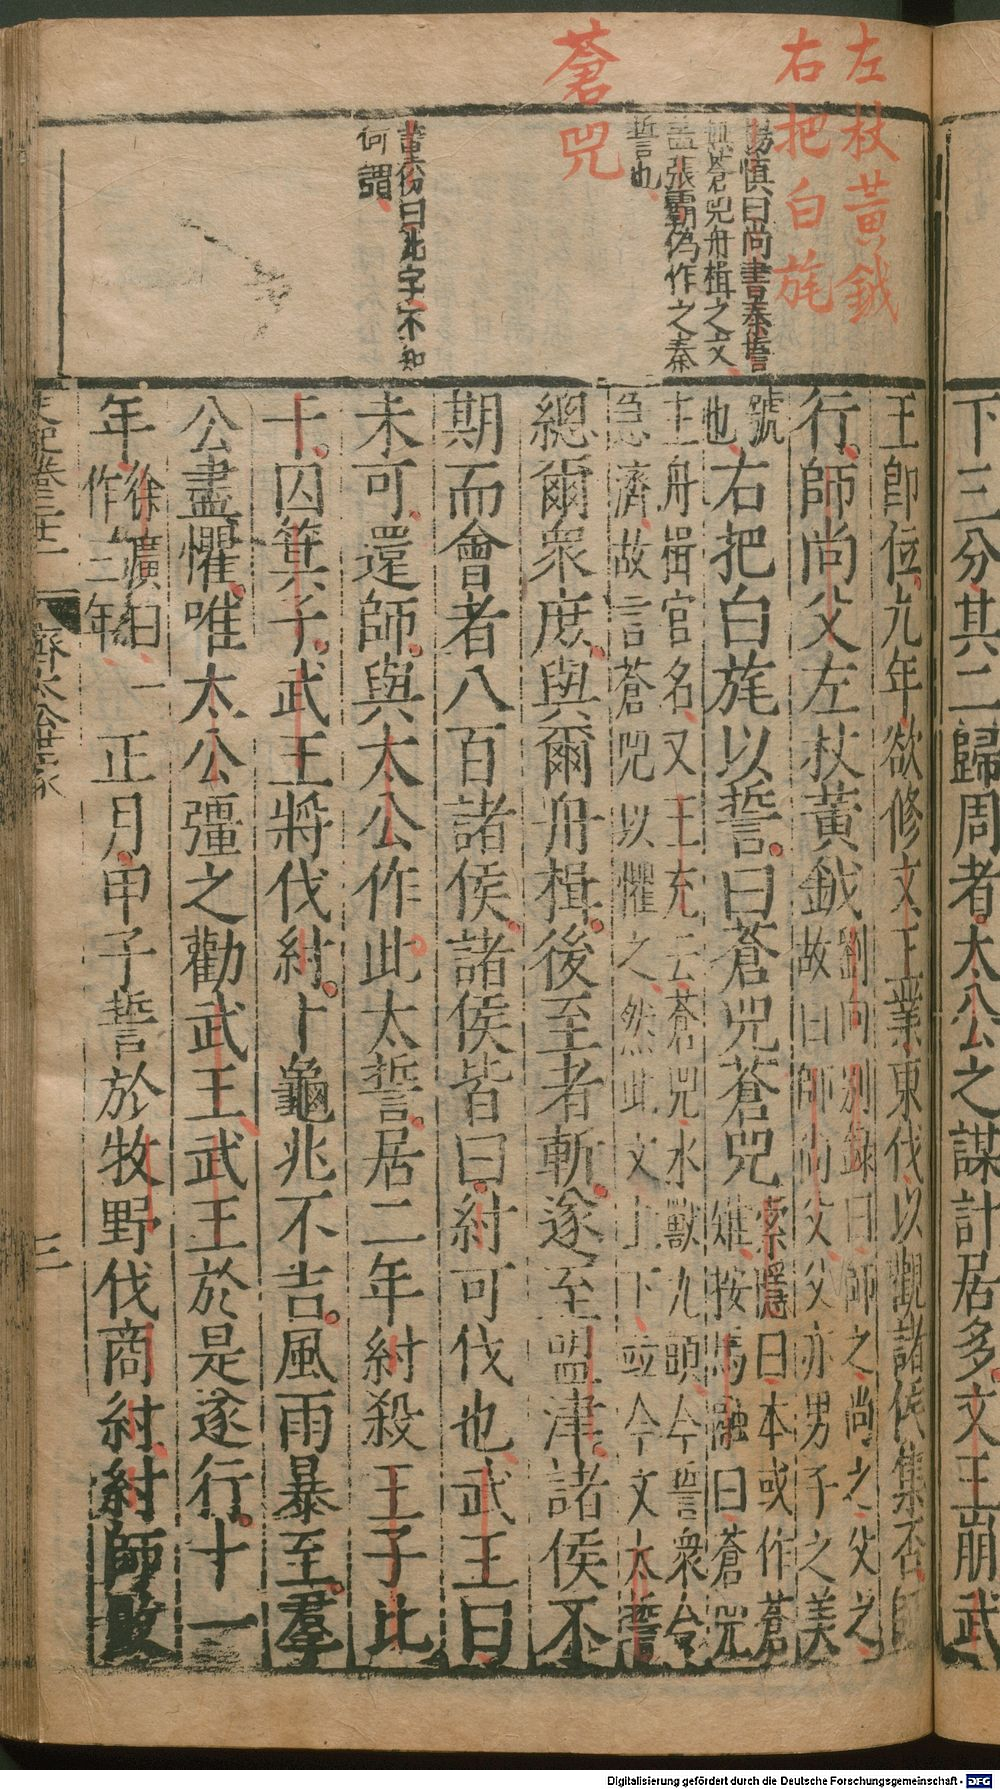 下三分其二歸周者太公之謀計居多文王崩武
左杖黃鉞
右把白旄
蒼兕
楊慎曰尚書泰誓
無蒼兕舟楫之文
蓋張霸偽作之泰
誓也
董份曰此字不知
何謂
王卽位九年欲修文王業東伐以觀諸侯集否師
行師尚父左杖黃鉞
劉向別錄曰師之尚之父之
故曰師尚父父亦男子之美
號
也
右把白旄以誓曰蒼兕蒼兕
索隱曰本或作蒼
雉按馬融曰蒼兕
主舟楫官名又王充云蒼兕水獸九頭今誓衆令
急濟故言蒼兕以懼之然此文上下並今文太誓
總爾衆庶與爾舟楫後至者斬遂至盟津諸侯不
期而會者八百諸侯諸侯皆曰紂可伐也武王曰
未可還師與太公作此太誓居二年紂殺王子比
干囚箕子武王將伐紂卜龜兆不吉風雨暴至羣
公盡懼唯太公彊之勸武王武王於是遂行十一
年
徐廣曰一
作三年
正月甲子誓於牧野伐商紂紂師敗
齊太公世家
三
Digitalisierung gefördert durch die Deutsche Forschungsgemeinschaft - DFG